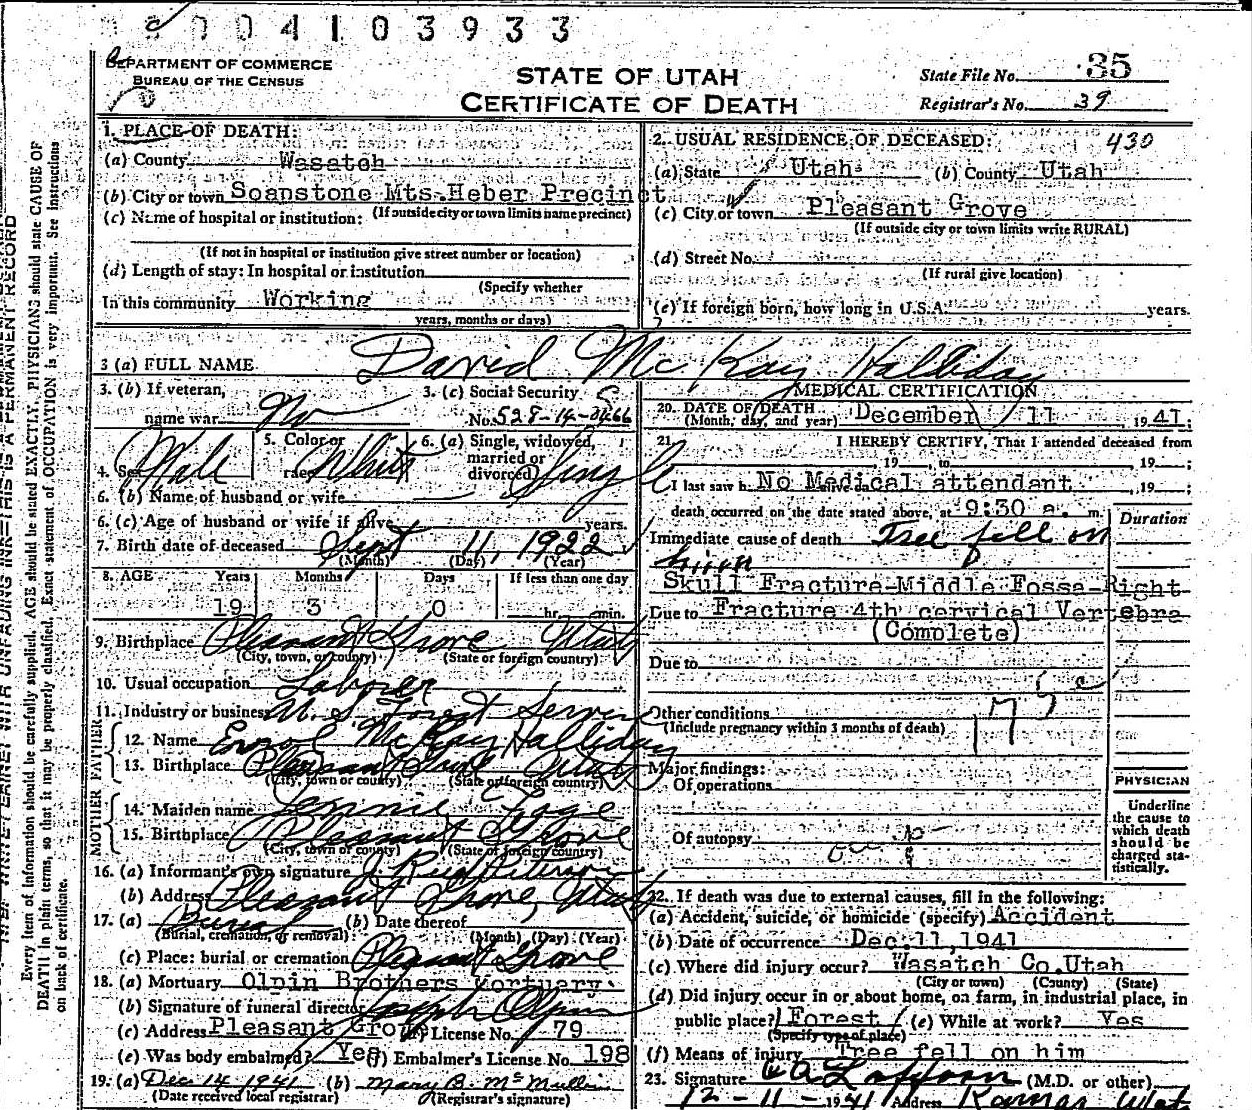 004103933
DEPARTMENT OF COMMERCE
BUREAU OF THE CENSUS
STATE OF UTAH
CERTIFICATE OF DEATH
State File No. 35
Registrar's No. 39
1. PLACE OF DEATH:
(a) County Wasatch
(b) City or town Soapstone Mts. Heber Precinct
(If outside city or town limits name precinct)
(c) Name of hospital or institution:
(If not in hospital or institution give street number or location)
(d) Length of stay: In hospital or institution
(Specify whether
In this community Working
years, months or days)
2. USUAL RESIDENCE OF DECEASED: 430
(a) State Utah (b) County Utah
(c) City or town Pleasant Grove
(If outside city or town limits write RURAL)
(d) Street No.
(If rural give location)
(e) If foreign born, how long in U.S.A. years.
3 (a) FULL NAME David McKay Halliday
3. (b) If veteran,
name war No
3. (c) Social Security
No. 528-14-3466
4. Sex Male
5. Color or
race White
6. (a) Single, widowed,
married or
divorced Single
6. (b) Name of husband or wife
6. (c) Age of husband or wife if alive years.
7. Birth date of deceased Sept 11, 1922
(Month) (Day) (Year)
8. AGE Years Months Days If less than one day
19 3 0 hr. min.
9. Birthplace Pleasant Grove Utah
(City, town, or county) (State or foreign country)
10. Usual occupation Laborer
11. Industry or business U.S. Forest Service
FATHER
12. Name Errol McKay Halliday
13. Birthplace Pleasant Grove Utah
(City, town or county) (State or foreign country)
MOTHER
14. Maiden name Jennie Fage
15. Birthplace Pleasant Grove
(City, town or county) (State or foreign country)
16. (a) Informant's own signature J. Reed
(b) Address Pleasant Grove, Utah
17. (a) Burial (b) Date thereof
(Burial, cremation, or removal) (Month) (Day) (Year)
(c) Place: burial or cremation Pleasant Grove
18. (a) Mortuary Olpin Brothers Mortuary.
(b) Signature of funeral director Joseph Olpin
(c) Address Pleasant Grove License No. 79
(e) Was body embalmed? Yes (f) Embalmer's License No. 198
19. (a) Dec 14 1941 (b) Mary B. McMullin
(Date received local registrar) (Registrar's signature)
MEDICAL CERTIFICATION
20. DATE OF DEATH December 11 1941.
(Month, day, and year)
21. I HEREBY CERTIFY, That I attended deceased from
, 19 , to 19 ;
I last saw h No Medical attendant , 19 ;
death occurred on the date stated above, at 9:30 a. m.
Duration
Immediate cause of death Tree fell on
him
Skull Fracture-Middle Fossa-Right
Due to Fracture 4th cervical Vertebra
(Complete)
Due to
Other conditions
(Include pregnancy within 3 months of death)
Major findings:
Of operations
Of autopsy
PHYSICIAN
Underline
the cause to
which death
should be
charged sta-
tistically.
22. If death was due to external causes, fill in the following:
(a) Accident, suicide, or homicide (specify) Accident
(b) Date of occurrence Dec. 11, 1941
(c) Where did injury occur? Wasatch Co. Utah
(City or town) (County) (State)
(d) Did injury occur in or about home, on farm, in industrial place, in
public place? Forest (e) While at work? Yes
(Specify type of place)
(f) Means of injury Tree fell on him
23. Signature (M.D. or other)
12-11-1941 Address Kamas Utah
Every item of information should be carefully supplied. AGE should be stated EXACTLY. PHYSICIANS should state CAUSE OF
DEATH in plain terms, so that it may be properly classified. Exact statement of OCCUPATION is very important. See instructions
on back of certificate.
UNFADING INK—THIS IS A PERMANENT RECORD